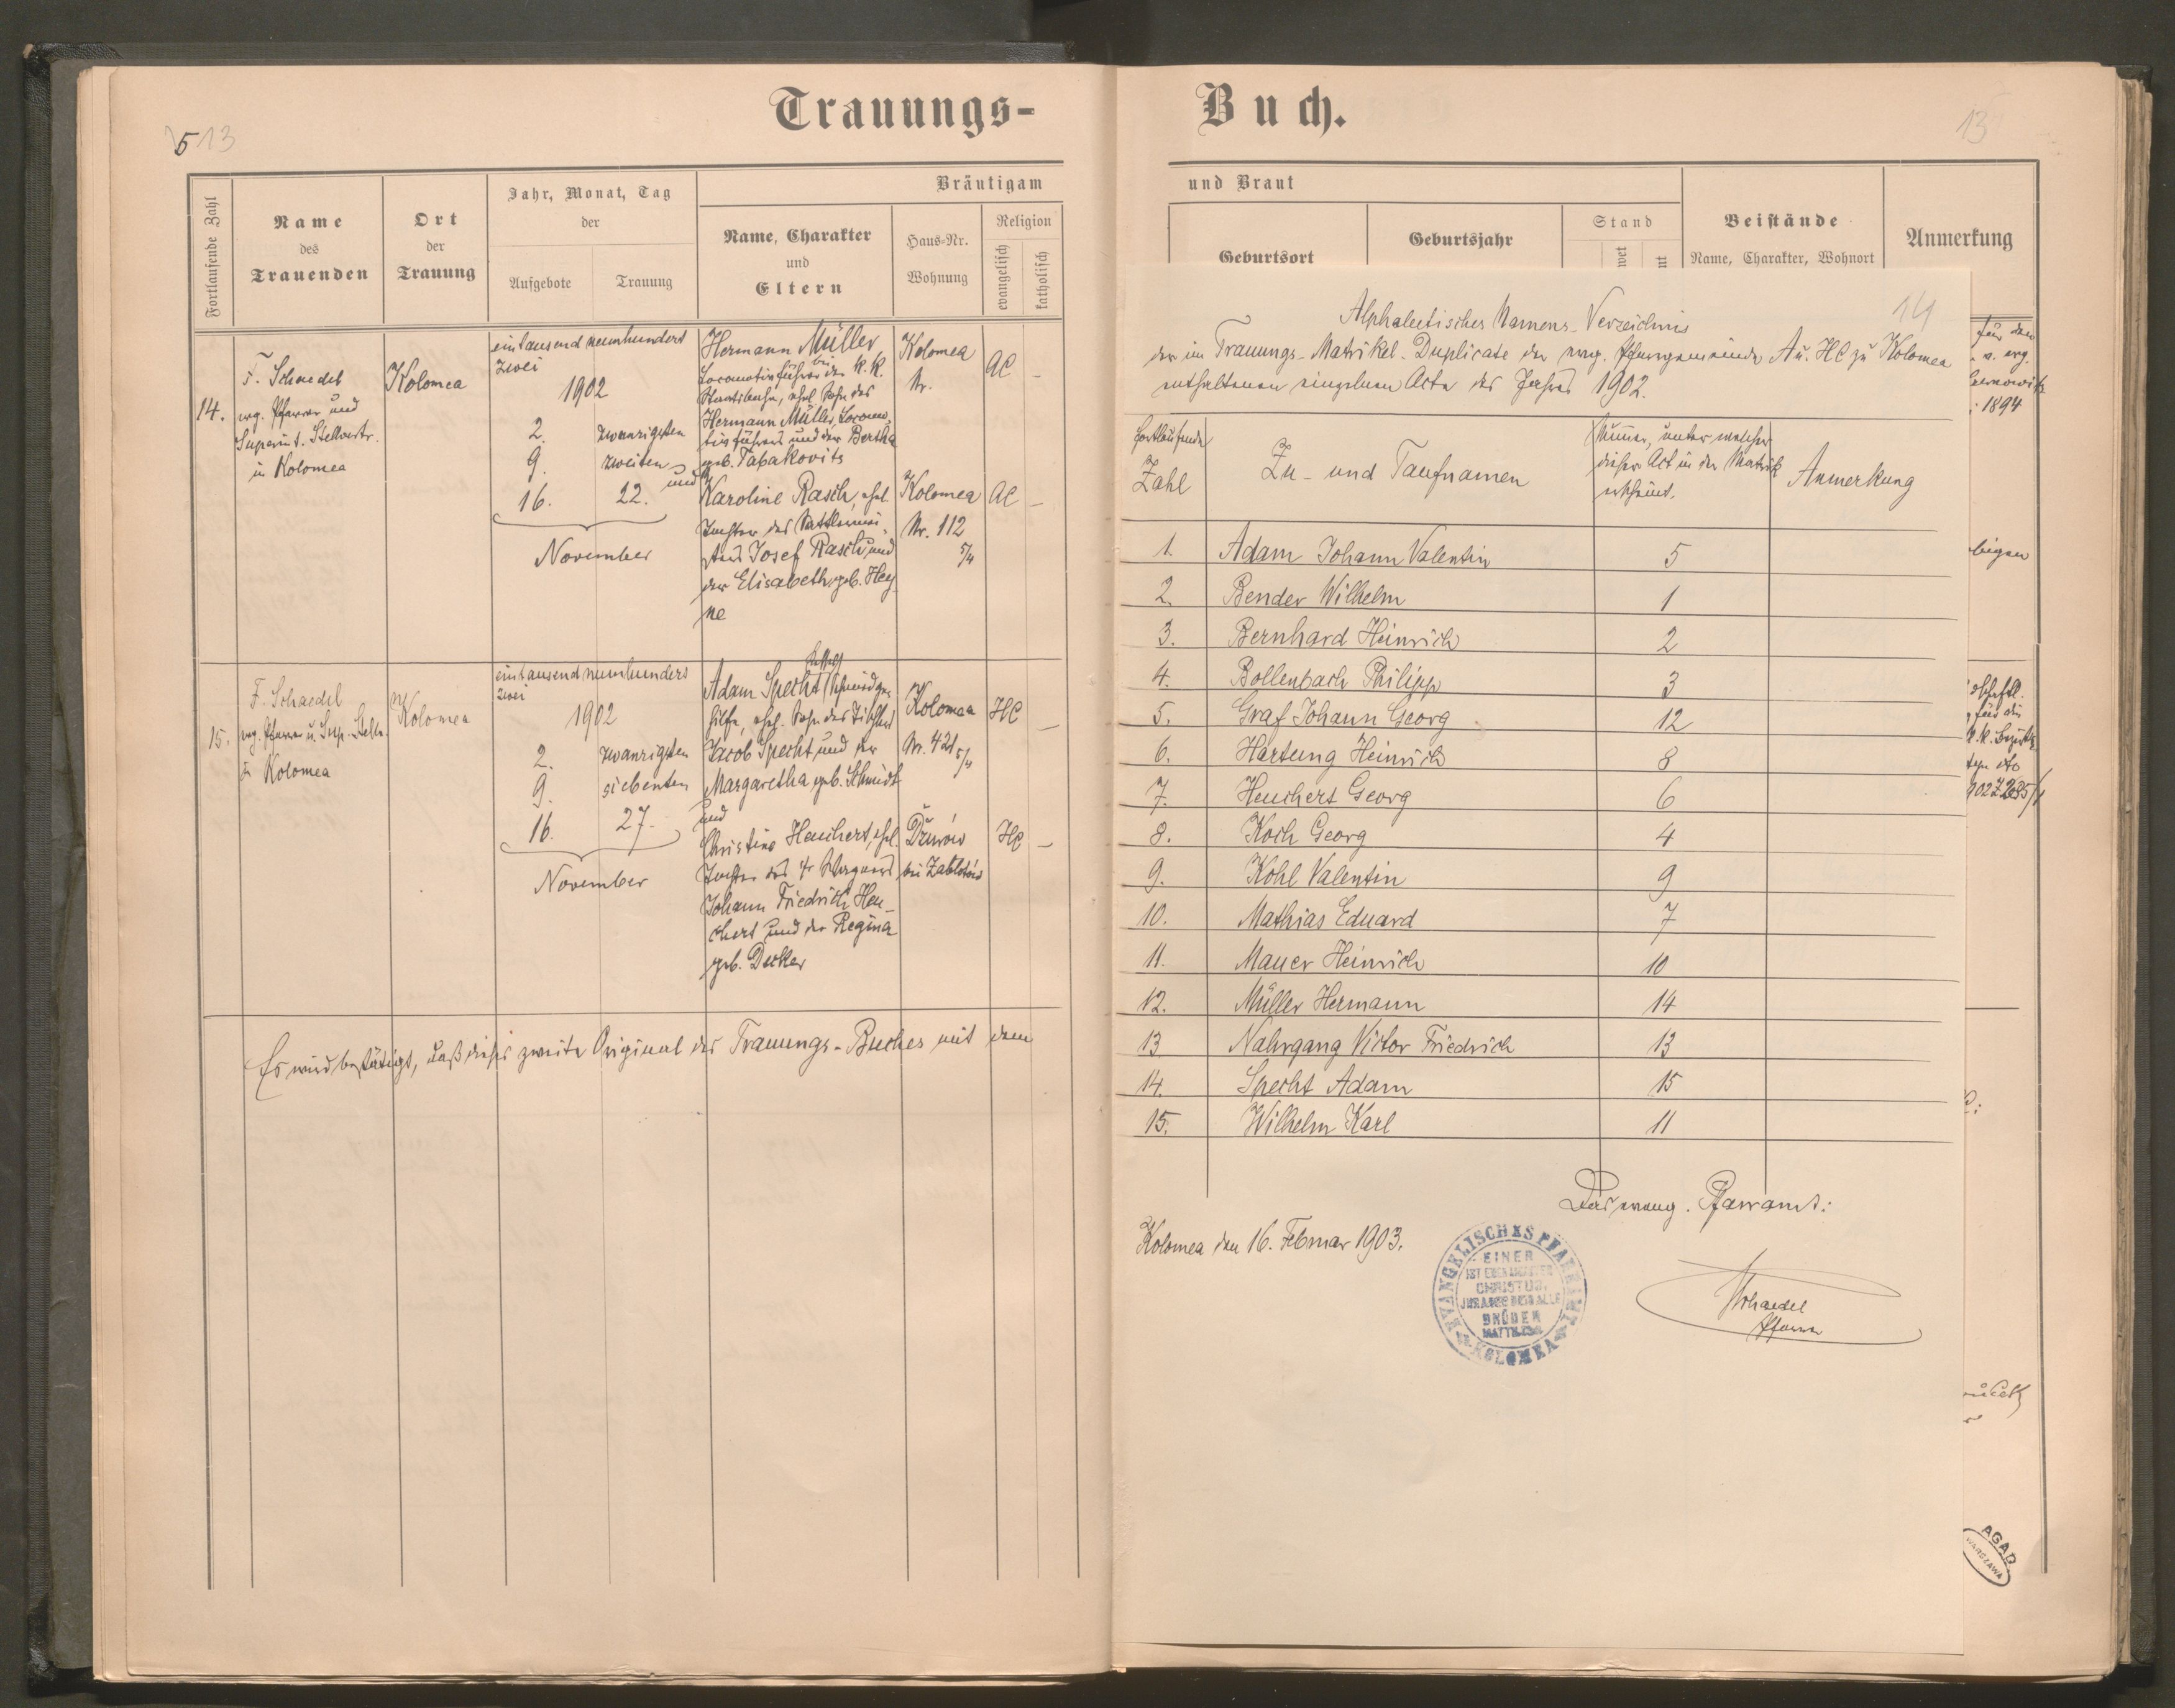 Trauungs-
513
Fortlaufende Zahl
Name
des
Trauenden
Ort
der
Trauung
Jahr, Monat, Tag
der
Aufgebote
Trauung
Bräutigam
Name, Charakter
und
Eltern
Haus-Nr.
Wohnung
Religion
evangelisch
katholisch
14.
F. Schaedel
evg. Pfarrer und
Superint. Stellvertr.
in Kolomea
Kolomea
eintausend neunhundert
zwei
1902
2.
9.
16.
zwanzigsten
zweiten
22.
November
Hermann Müller
Locomotivführer bei der k. k.
Staatsbahn, ehel. Sohn des
Hermann Müller, Locomo-
tivführers und der Bertha
geb. Tabakovits
und
Karoline Rasch, ehel.
Tochter des
Josef Rasch und
der Elisabeth, geb. Hey-
ne
Kolomea
Nr.
Kolomea
Nr. 112
5/4
AC
–
AC
–
15.
F. Schaedel
evg. Pfarrer u. Sup. Stellv.
in Kolomea
Kolomea
eintausend neunhundert
zwei
1902
2.
9.
16.
zwanzigsten
siebenten
27.
November
Adam Specht, Schmiedge-
hilfe, ehel. Sohn des Tischlers
Jacob Specht und der
Margaretha geb. Schmidt
und
Christine Heuchert, ehel.
Tochter des † Wagners
Johann Friedrich Heu-
chert und der Regina
geb. Decker
Kolomea
Nr. 421 5/4
Dżurów
bei Zabłotów
HC
–
HC
–
Es wird bestätigt, daß dieses zweite Original des Trauungs-Buches mit dem
Buch.
13
und Braut
Geburtsort
Geburtsjahr
Stand
Beistände
Name, Charakter, Wohnort
Anmerkung
14
Alphabetisches Namens-Verzeichnis
der im Trauungs-Matrikel-Duplicate der evang. Pfarrgemeinde A u. HC zu Kolomea
enthaltenen einzelnen Acte des Jahres 1902.
Fortlaufende
Zahl
Zu- und Taufnamen
Nummer, unter welcher
dieser Act in der Matrik
erscheint.
Anmerkung
1. Adam Johann Valentin 5
2. Bender Wilhelm 1
3. Bernhard Heinrich 2
4. Bollenbach Philipp 3
5. Graf Johann Georg 12
6. Hartung Heinrich 8
7. Heuchert Georg 6
8. Koch Georg 4
9. Kohl Valentin 9
10. Mathias Eduard 7
11. Mauer Heinrich 10
12. Müller Hermann 14
13 Nahrgang Victor Friedrich 13
14. Specht Adam 15
15. Wilhelm Karl 11
Das evang. Pfarramt:
Kolomea den 16. Februar 1903.
EVANGELISCHES PFARRAMT
KOLOMEA
EINER
IST EUER MEISTER
CHRISTUS,
IHR ABER SEID ALLE
BRÜDER
MATTH.
Schaedel
Pfarrer
für den
Czernowitz
1894
AGAD
WARSZAWA